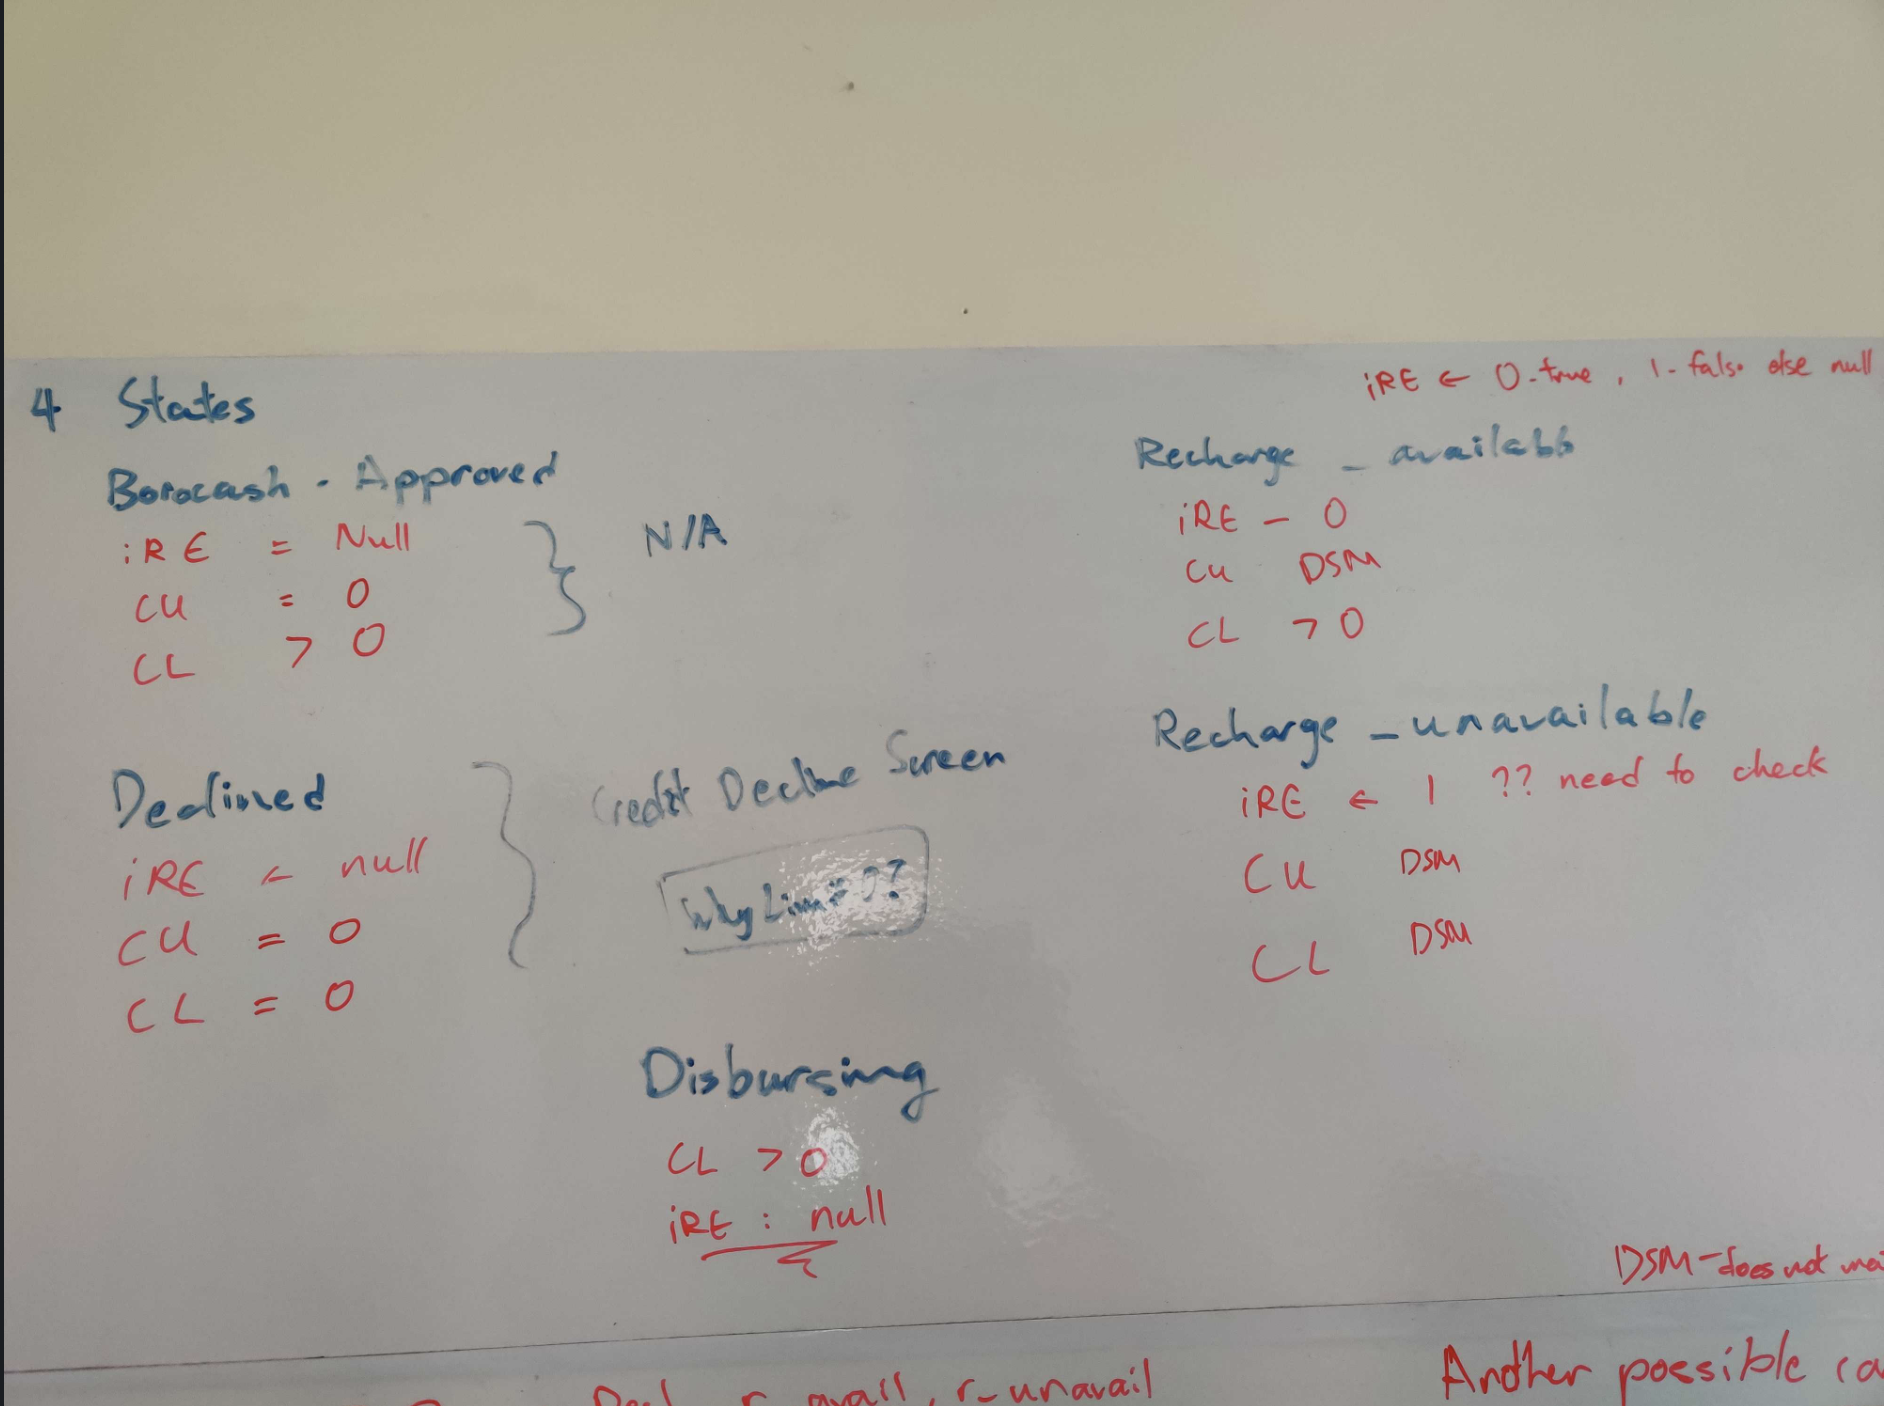 4 States
Borocash - Approved
iRE = Null
CU = 0
CL > 0
N/A
Declined
iRE ← null
CU = 0
CL = 0
Credit Decline Screen
Why Limit 0?
Disbursing
CL > 0
iRE : null
iRE ← 0-true, 1-false else null
Recharge _ available
iRE - 0
CU DSM
CL > 0
Recharge _ unavailable
iRE ← 1 ?? need to check
CU DSM
CL DSM
DSM - does not
r_unavail
Another possible